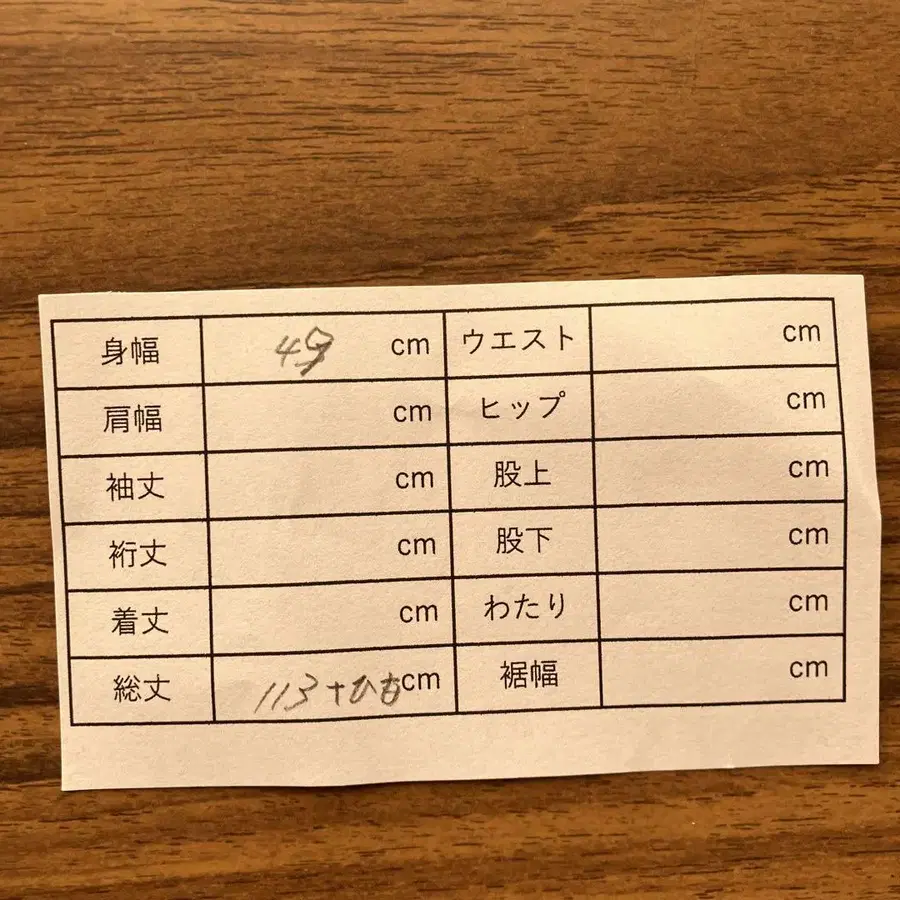 身幅 cm ウエスト cm
肩幅 cm ヒップ cm
袖丈 cm 股上 cm
裄丈 cm 股下 cm
着丈 cm わたり cm
総丈 113+ひも cm 裾幅 cm